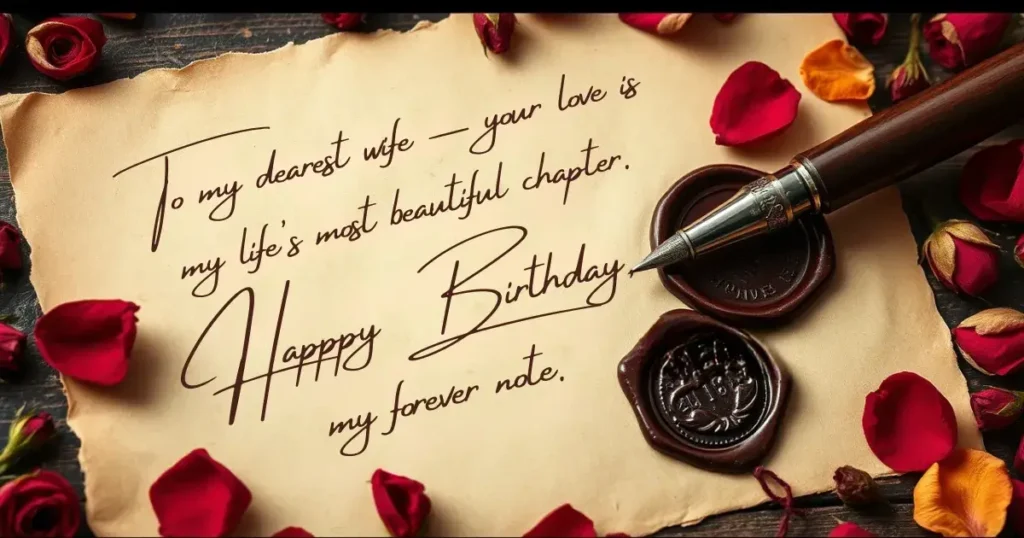 To my dearest wife — your love is
my life's most beautiful chapter.
Happpy Birthday,
my forever note.